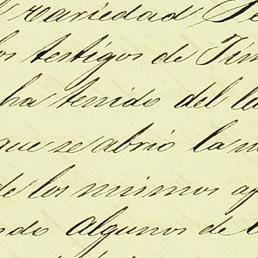 variedad
los testigos de
ha tenido del
que se abrió la
de los mismos
algunos de